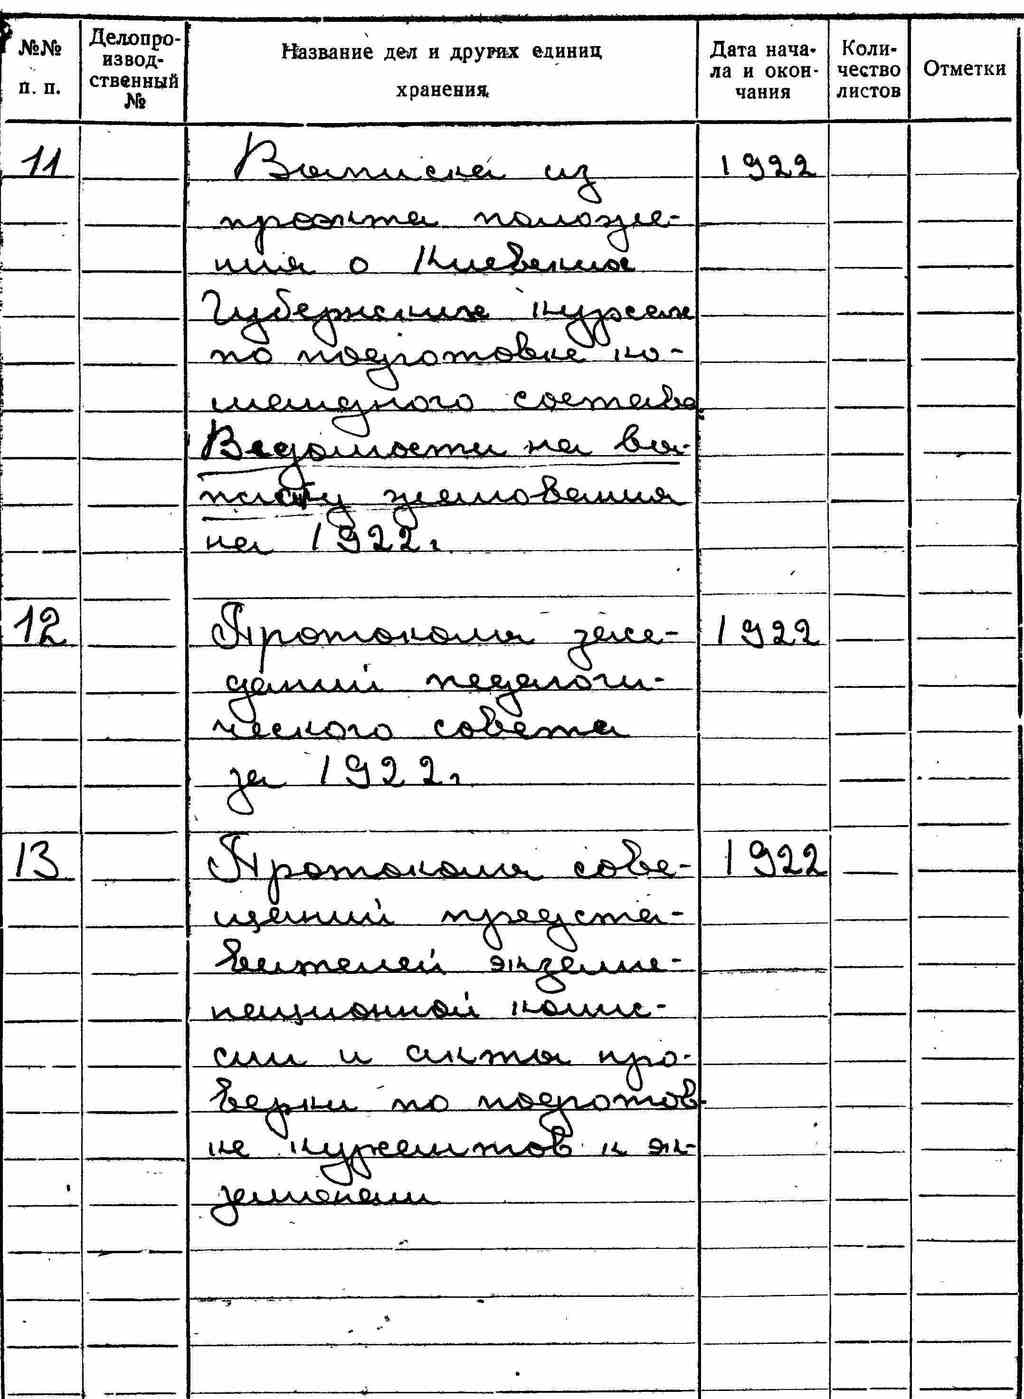 №№ п. п.
Делопро-
извод-
ственный
№
Название дел и других единиц
хранения
Дата нача-
ла и окон-
чания
Коли-
чество
листов
Отметки
11 Выписка из 1922
проекта положе-
ния о Киевских
Губернских курсах
по подготовке ко-
мандного состава.
Ведомости на вы-
плату жалования
на 1922 г.
12 Протоколы засе- 1922
даний педагоги-
ческого совета
за 1922 г.
13 Протоколы сове- 1922
щаний предста-
вителей экзаме-
национной комис-
сии и акты про-
верки по подготов-
ке курсантов к эк-
заменам